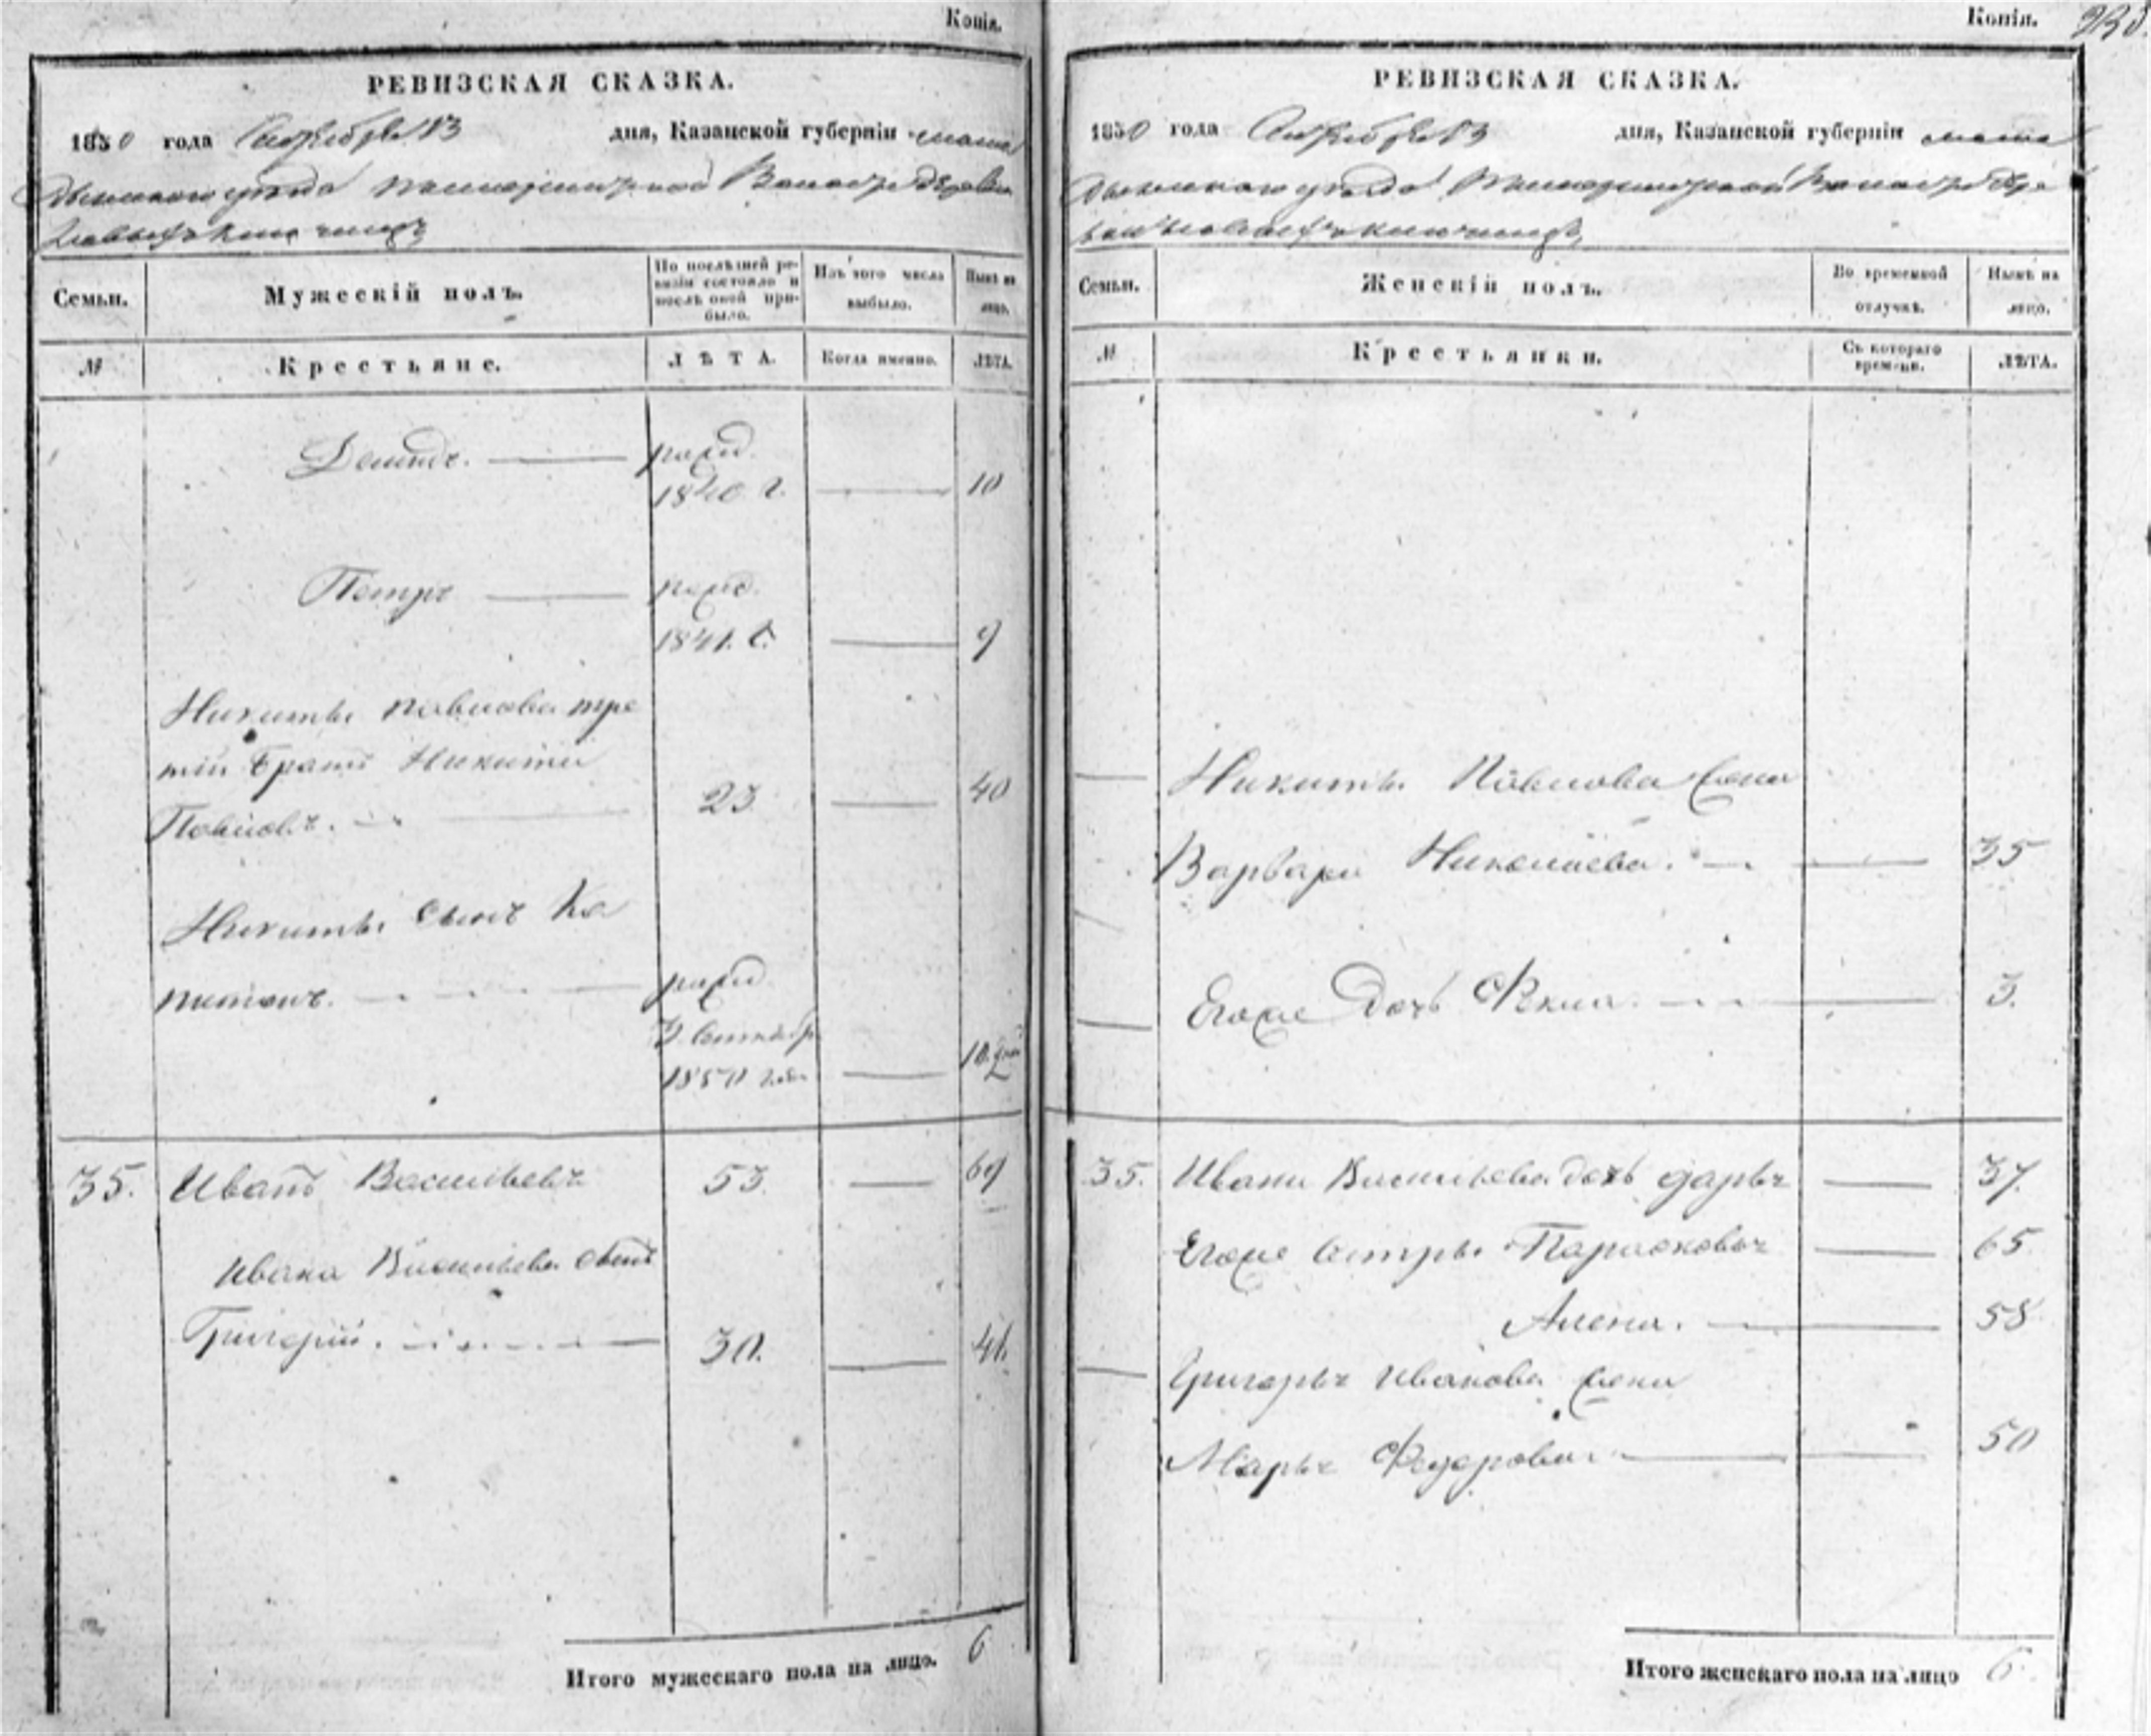 Копія.
РЕВИЗСКАЯ СКАЗКА.
1850 года Сентября 13 дня, Казанской губерніи мама
дышскаго уѣзда Волости деревни
Семьи.
Мужескій полъ.
По послѣдней ре-
визіи состояло и
послѣ оной при-
было.
Изъ того числа
выбыло.
Нынѣ на
лицо.
№
Крестьяне.
ЛѢТА.
Когда именно.
ЛѢТА.
Демидъ.
рожд.
1840 г. 10
Петръ
рожд.
1841. г. 9
Никиты Павлова тре
тій братъ Никита
Павловъ. 23 40
Никиты сынъ Ка
питонъ. рожд.
3 Сентябр.
1850 года 10 дней
35. Иванъ Васильевъ 53 69
Ивана Васильева сынъ
Григорій. 30. 41.
Итого мужескаго пола на лицо. 6
Копія.
РЕВИЗСКАЯ СКАЗКА.
1850 года Сентября 13 дня, Казанской губерніи мама
дышскаго уѣзда Волости дере
Семьи.
Женскій полъ.
Во временной
отлучкѣ.
Нынѣ на
лицо.
№
Крестьянки.
Съ котораго
времени.
ЛѢТА.
Никиты Павлова жена
Варвара Николаева. 35
Его же дочь Фекла. 3.
35. Ивана Васильева дочь дарья 37.
Его же сестры Парасковья 65
Алена. 58
Григорья Иванова жена
Марья Федорова 50
Итого женскаго пола на лицо 6.